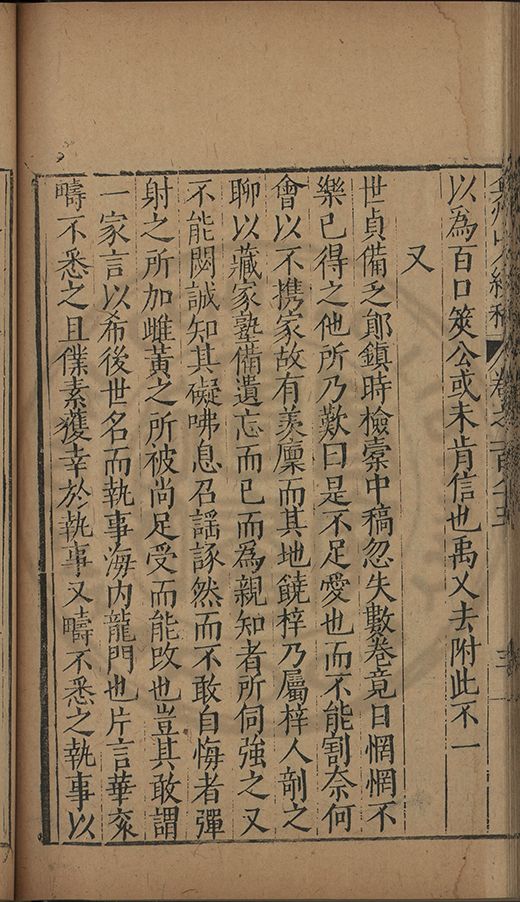 弇州山人續稿 卷之一百八十五
以為百口筴公或未肯信也禹又去附此不一
又
世貞備乏鄖鎮時檢橐中稿忽失數卷竟日惘惘不
樂已得之他所乃歎曰是不足愛也而不能割奈何
會以不携家故有羨廩而其地饒梓乃屬梓人剞之
聊以藏家塾備遺忘而已而為親知者所伺強之又
不能閟誠知其礙咈息召謡諑然而不敢自悔者彈
射之所加雌黄之所被尚足受而能攺也豈其敢謂
一家言以希後世名而執事海内龍門也片言華衮
疇不悉之且僕素獲幸於執事又疇不悉之執事以